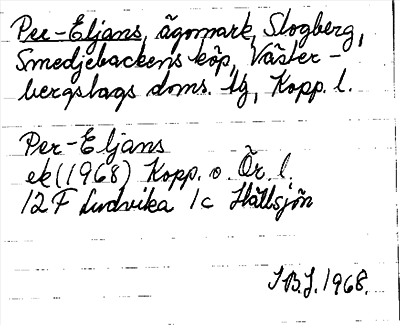 Per-Eljans, ägomark, Slogberg,
Smedjebackens köp, Väster-
bergslags doms. tg, Kopp. l.
Per-Eljans
ek (1968) Kopp. o. Ör. l.
12 F Ludvika 1c Hällsjön
I.B.J. 1968.